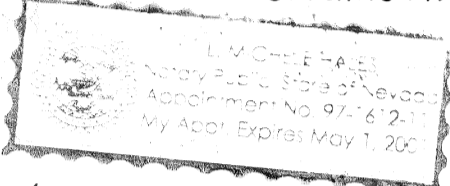 L. MICHELE HALES
Notary Public State of Nevada
Appointment No. 97-1612-11
My Appt. Expires May 1, 200